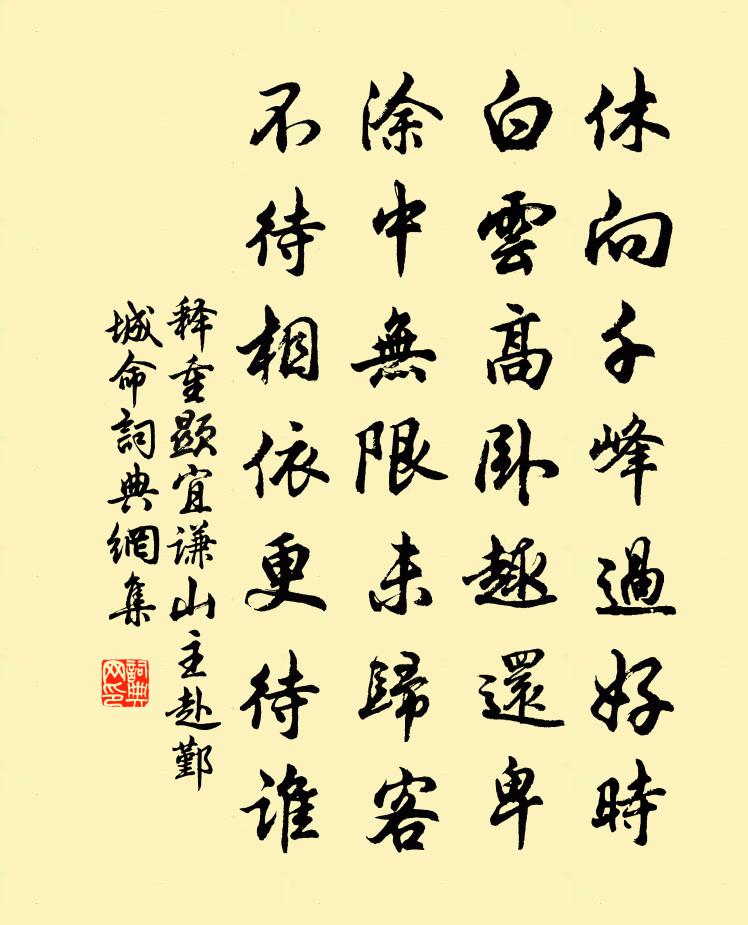 休向千峰過好時
白雲高卧趣還卑
涂中無限未歸客
不待相依更待誰
释重顯宜谦山主赴鄞
城命詞典網集
詞典
网印